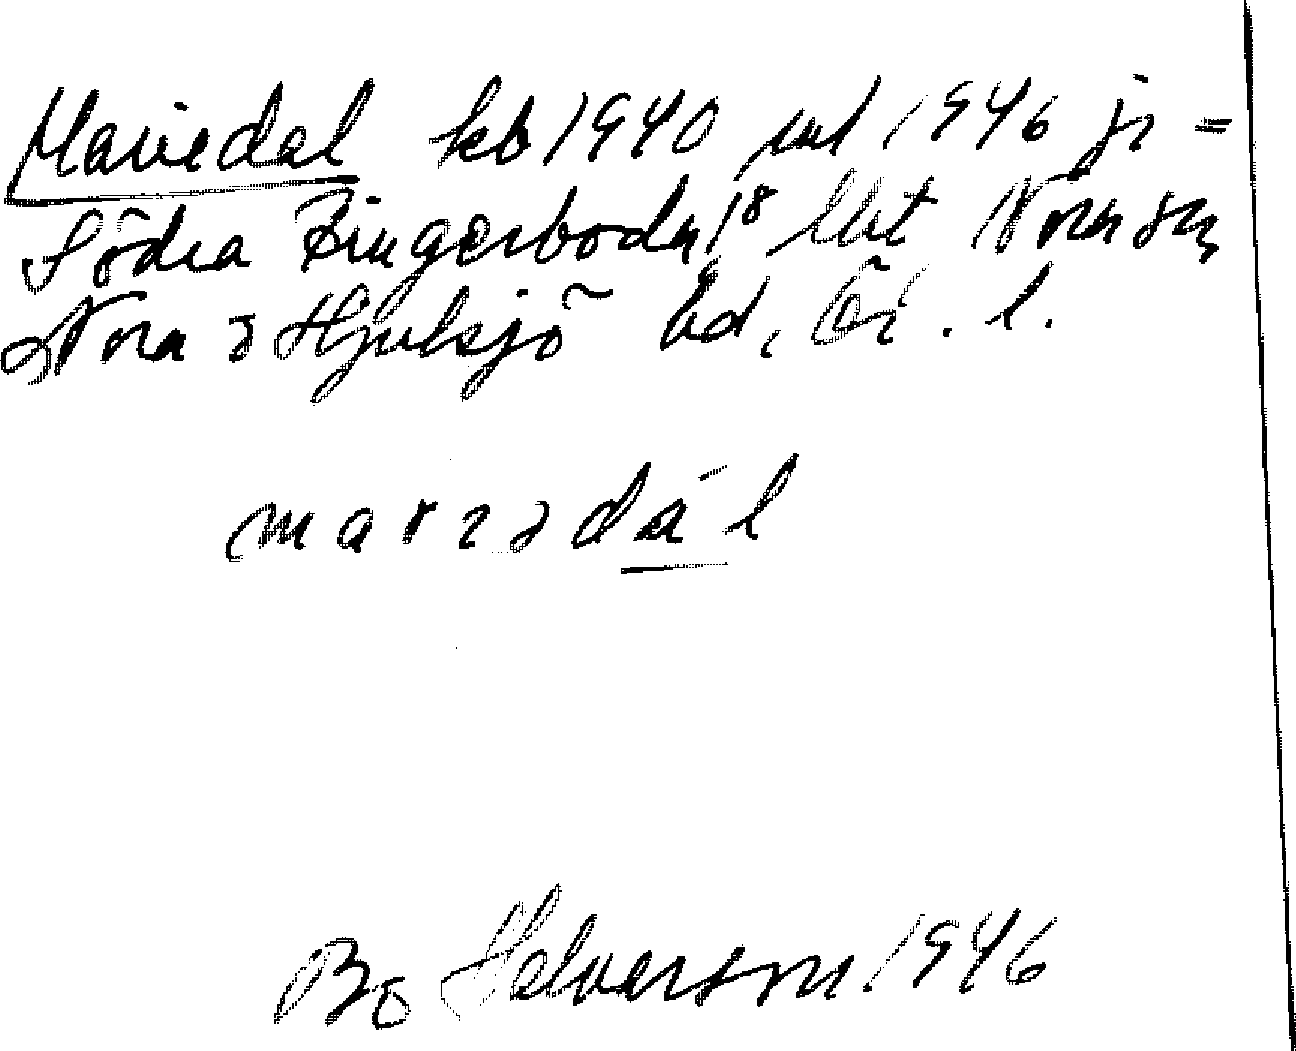 Mariedal kb 1940 uvl 1946 js =
Södra Ringerboda 1⁸ Mit Nora sn,
Nora o Hjulsjö bd, Ör. l.
marıəda´l
Bo Halvarson 1946